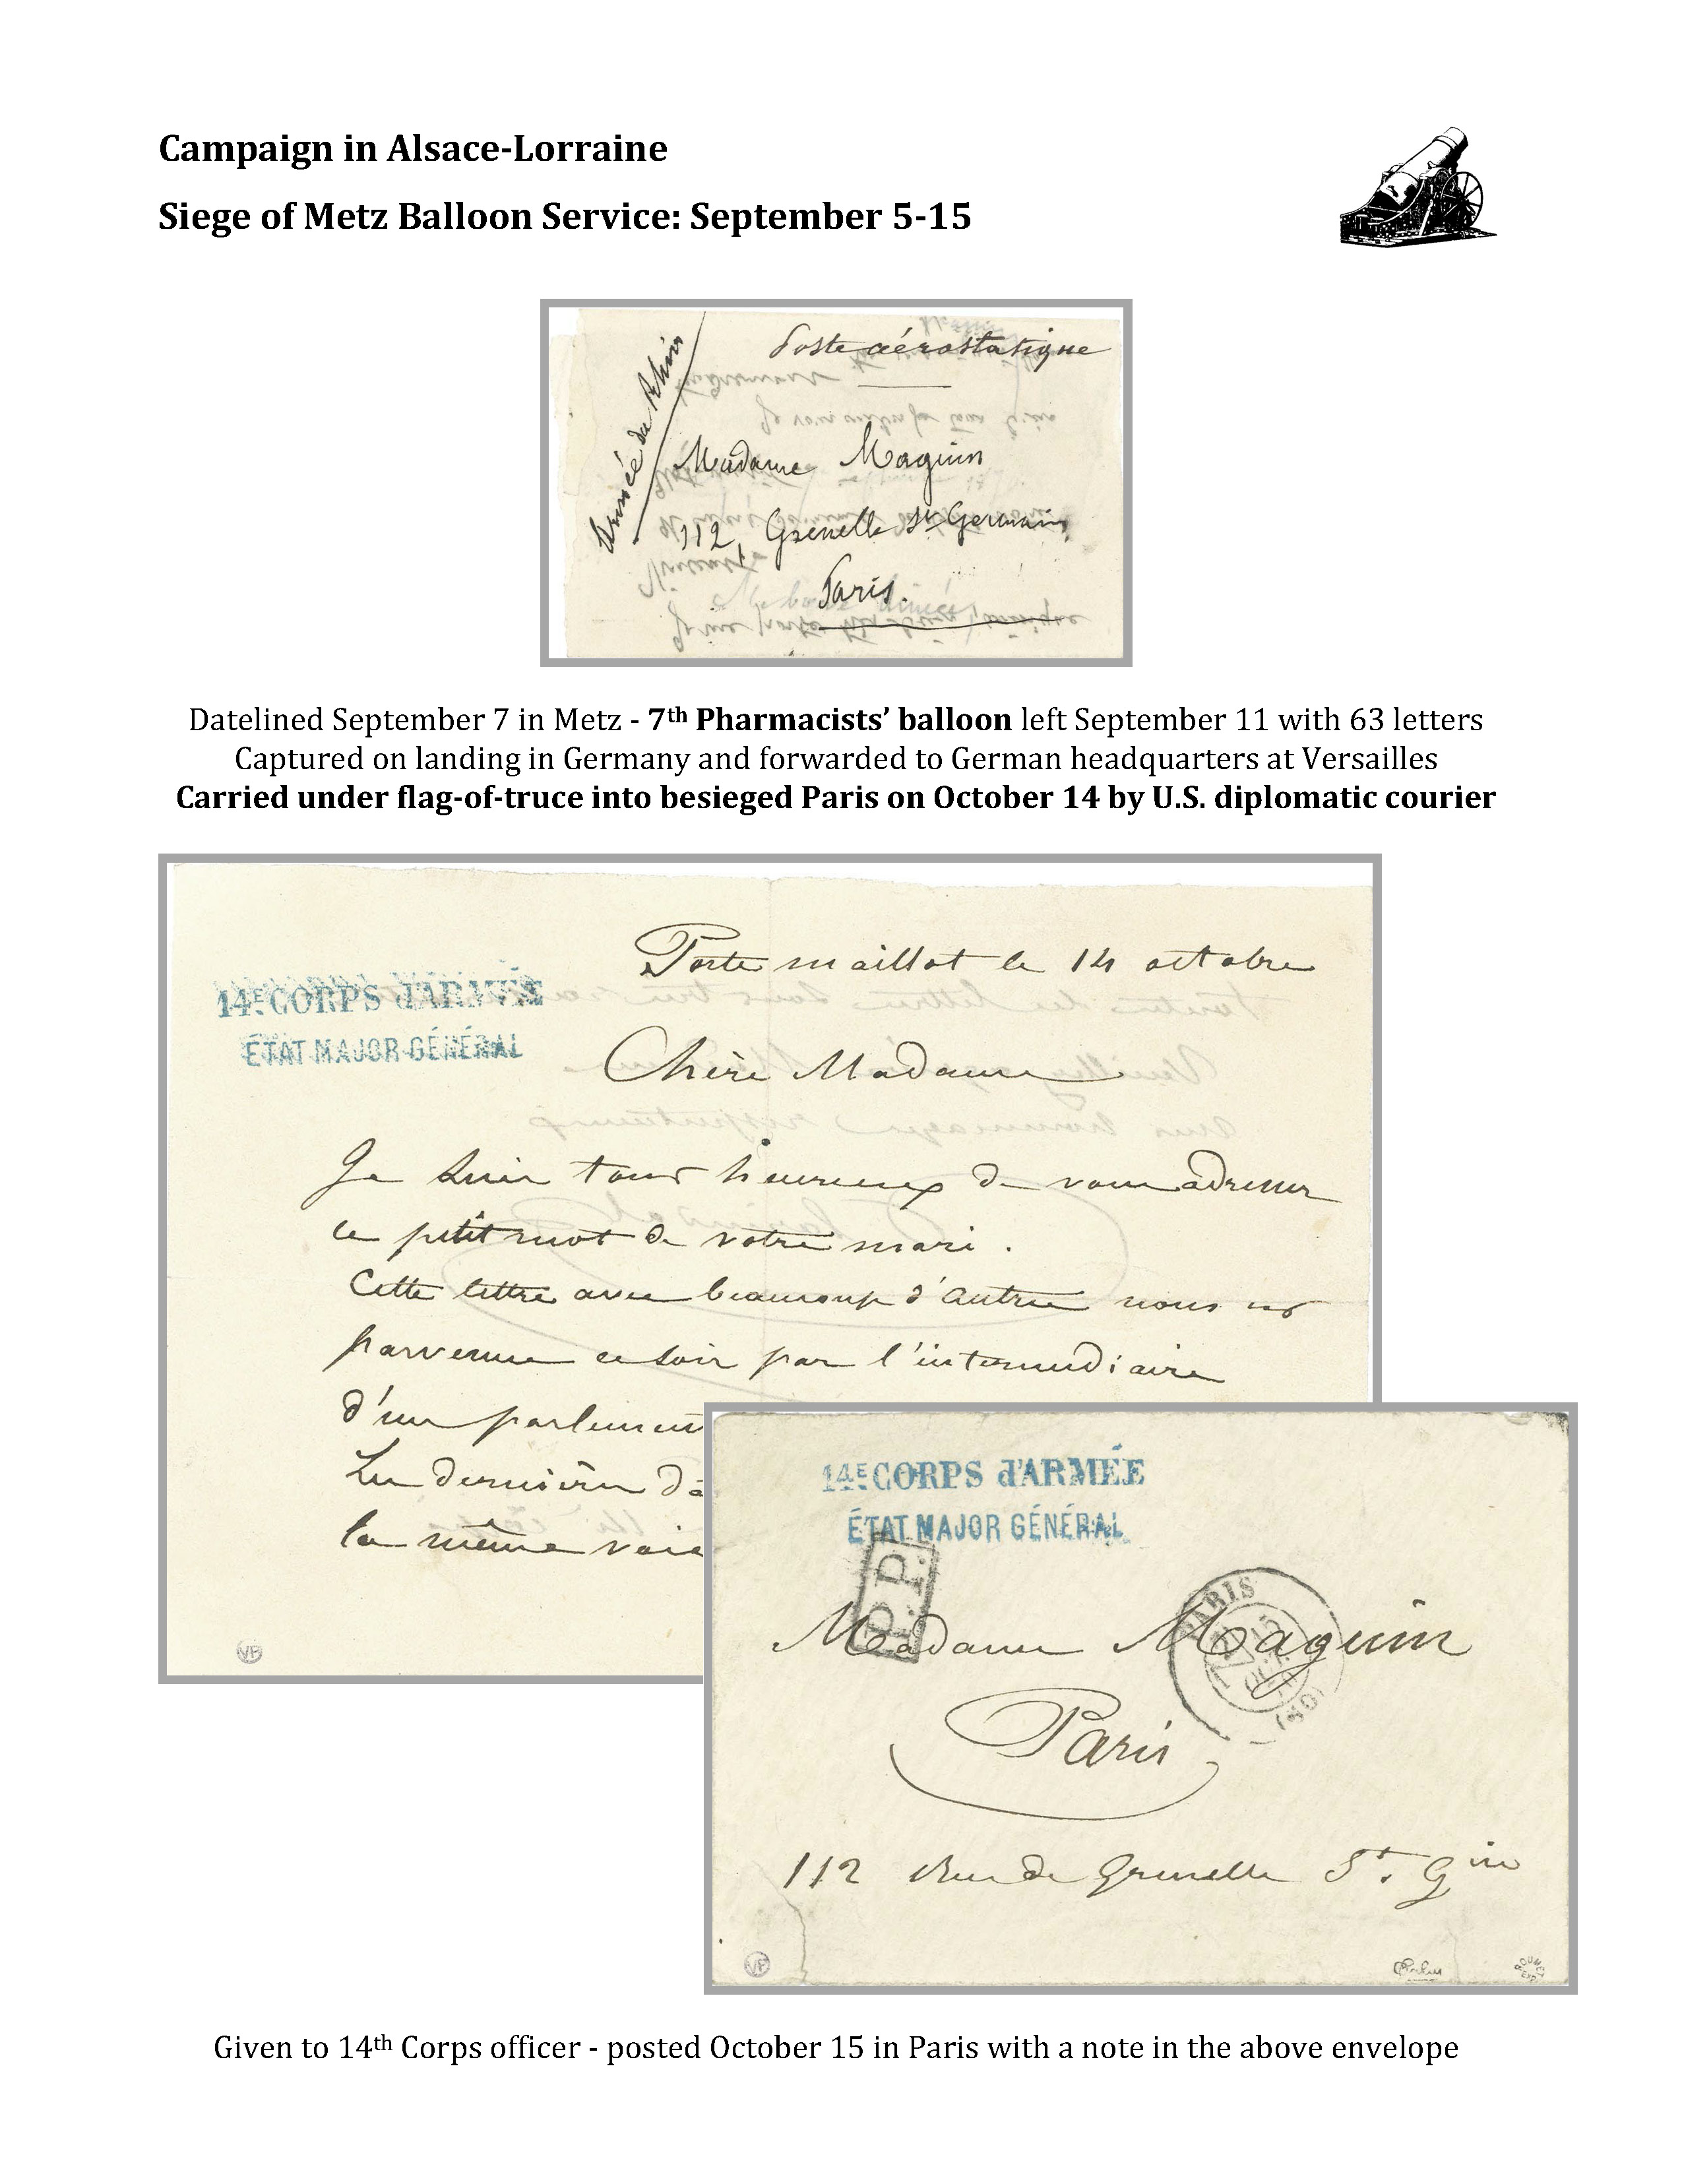 Campaign in Alsace-Lorraine
Siege of Metz Balloon Service: September 5-15
Poste aérostatique
Armée du Rhin
Madame Maguin
112, Grenelle St Germain,
Paris.
Datelined September 7 in Metz - 7th Pharmacists’ balloon left September 11 with 63 letters
Captured on landing in Germany and forwarded to German headquarters at Versailles
Carried under flag-of-truce into besieged Paris on October 14 by U.S. diplomatic courier
Porte maillot le 14 octobre
14E CORPS d'ARMÉE
ÉTAT MAJOR GÉNÉRAL
Chère Madame
Je suis tout heureux de vous adresser
ce petit mot de votre mari.
Cette lettre avec beaucoup d'autres nous est
parvenue ce soir par l'intermédiaire
d'un parlement
la même voie
VP
14E CORPS d'ARMÉE
ÉTAT MAJOR GÉNÉRAL
P.P.
PARIS
15
(60)
Madame Maguin
Paris
112 Rue de Grenelle St. Gin
VP
Given to 14th Corps officer - posted October 15 in Paris with a note in the above envelope